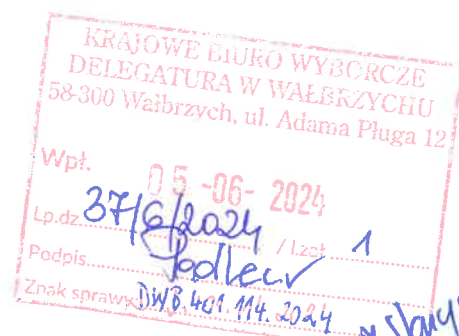 KRAJOWE BIURO WYBORCZE
DELEGATURA W WAŁBRZYCHU
58-300 Wałbrzych, ul. Adama Pługa 12
Wpł. 05 -06- 2024
Lp.dz. 37/6/2024 / l.zał. 1
Podpis
Znak sprawy DWB.401.114.2024